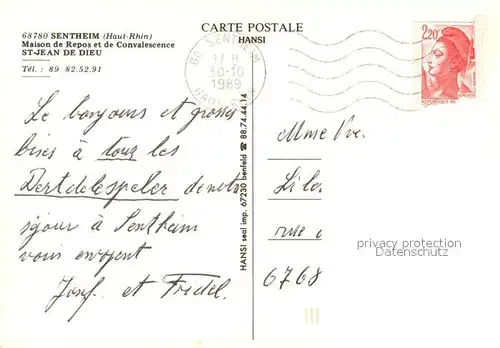 68780 SENTHEIM (Haut-Rhin)
Maison de Repos et de Convalescence
ST-JEAN DE DIEU
Tél. : 89 82.52.91
CARTE POSTALE
HANSI
68 SENTHEIM
17 H
30-10
1989
HAUT-RHIN
2,20
Le bonjour et grosses
bises à tous les
de notre
séjour à Sentheim
vous envoyent
Josef et Fredel.
HANSI seal imp. 67230 benfeld ☎ 88.74.44.14
Mme Vve.
rue
6768
privacy protection
Datenschutz